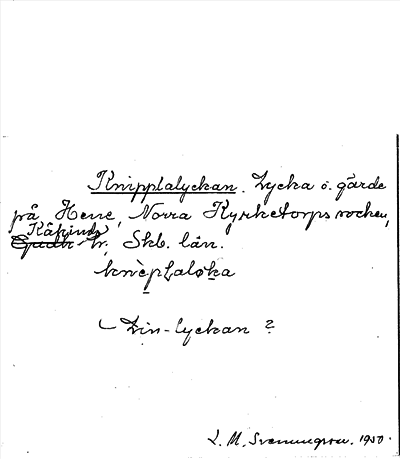 Knipplalyckan. Lycka o. gärde
på Hene, Norra Kyrketorps socken,
Kåkinds
hr. Skb. län.
knèplaløka
Lin-lyckan?
S. M. Svenungsson. 1950.